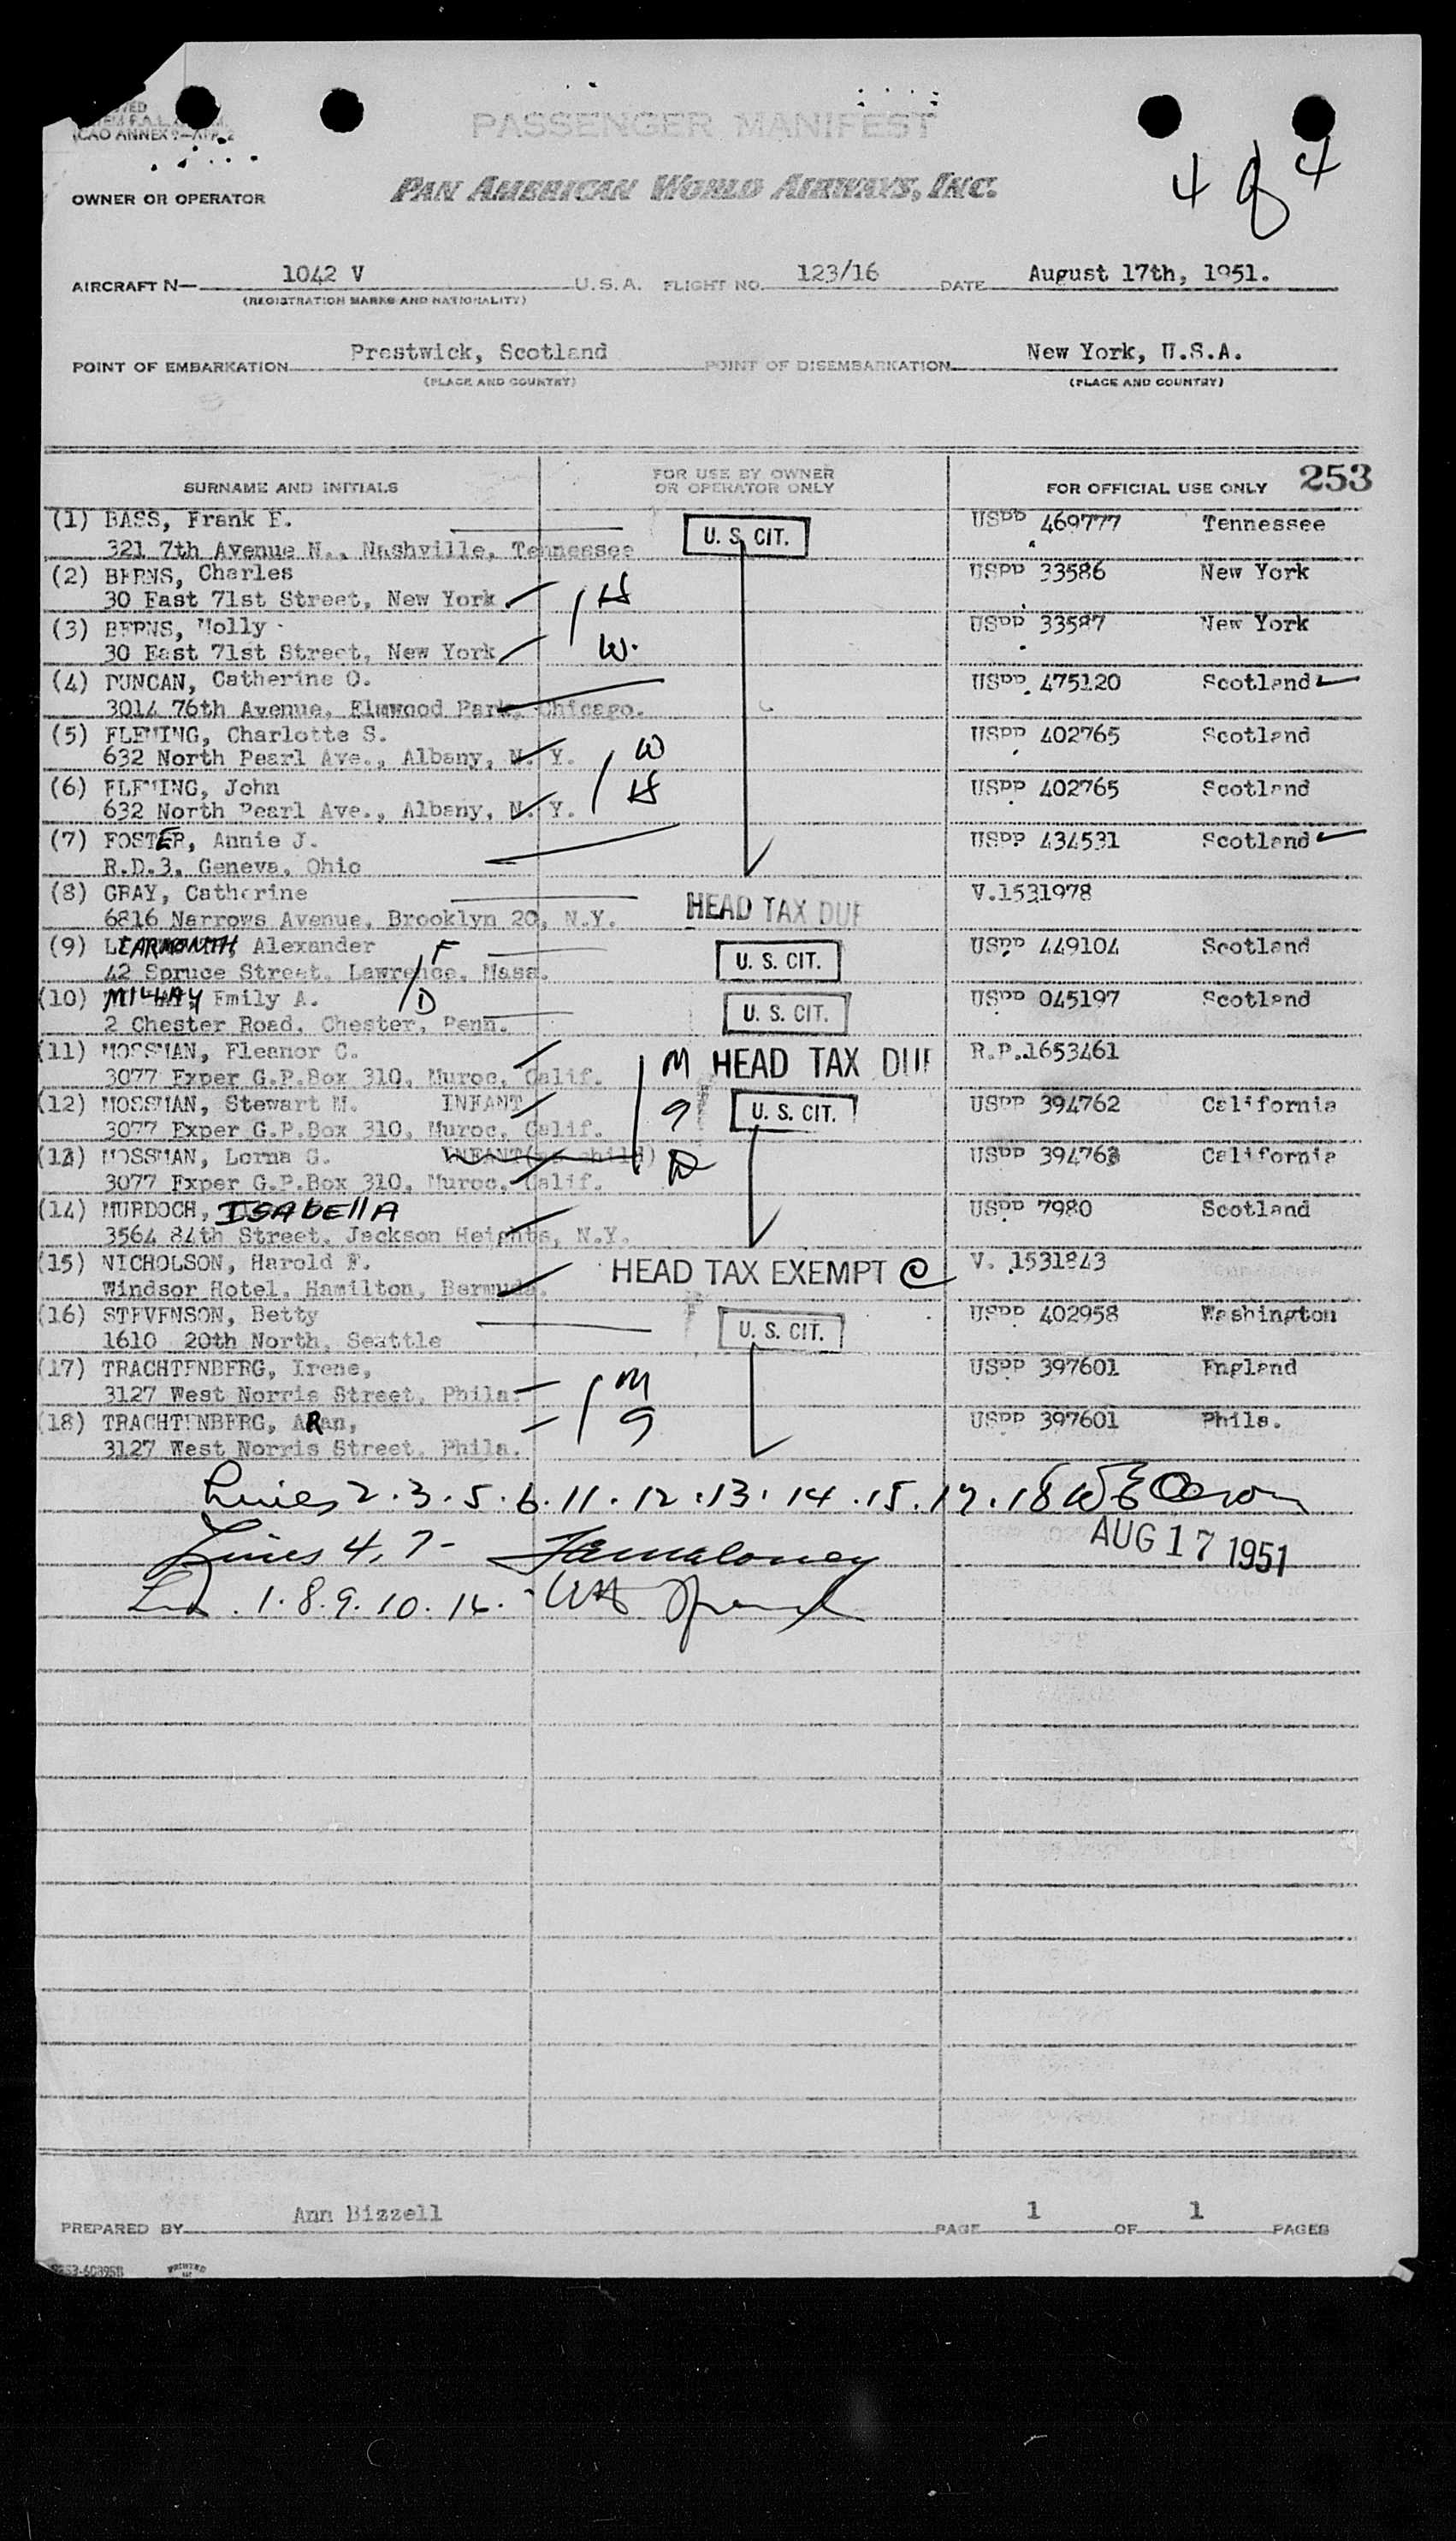 ICAO ANNEX 9—APP. 2
PASSENGER MANIFEST
4 of 4
OWNER OR OPERATOR PAN AMERICAN WORLD AIRWAYS, INC.
AIRCRAFT N— 1042 V U.S.A. FLIGHT NO. 123/16 DATE August 17th, 1951.
(REGISTRATION MARKS AND NATIONALITY)
POINT OF EMBARKATION Prestwick, Scotland POINT OF DISEMBARKATION New York, U.S.A.
(PLACE AND COUNTRY) (PLACE AND COUNTRY)
SURNAME AND INITIALS FOR USE BY OWNER OR OPERATOR ONLY FOR OFFICIAL USE ONLY 253
(1) BASS, Frank E. U. S. CIT. USPP 469777 Tennessee
321 7th Avenue N., Nashville, Tennessee
(2) BERNS, Charles H USPP 33586 New York
30 East 71st Street, New York
(3) BERNS, Molly W. USPP 33587 New York
30 East 71st Street, New York
(4) DUNCAN, Catherine O. USPP 475120 Scotland
3014 76th Avenue, Elmwood Park, Chicago.
(5) FLEMING, Charlotte S. W USPP 402765 Scotland
632 North Pearl Ave., Albany, N. Y.
(6) FLEMING, John H USPP 402765 Scotland
632 North Pearl Ave., Albany, N. Y.
(7) FOSTER, Annie J. USPP 434531 Scotland
R.D.3, Geneva, Ohio
(8) GRAY, Catherine HEAD TAX DUE V.1531978
6816 Narrows Avenue, Brooklyn 20, N.Y.
(9) LEARMONTH, Alexander F U. S. CIT. USPP 449104 Scotland
42 Spruce Street, Lawrence, Mass.
(10) MILLAY Emily A. D U. S. CIT. USPP 045197 Scotland
2 Chester Road, Chester, Penn.
(11) MOSSMAN, Eleanor C. M HEAD TAX DUE R.P.1653461
3077 Exper G.P.Box 310, Muroc, Calif.
(12) MOSSMAN, Stewart M. INFANT S U. S. CIT. USPP 394762 California
3077 Exper G.P.Box 310, Muroc, Calif.
(13) MOSSMAN, Lorna G. D USPP 394763 California
3077 Exper G.P.Box 310, Muroc, Calif.
(14) MURDOCH, ISABELLA USPP 7980 Scotland
3564 84th Street, Jackson Heights, N.Y.
(15) NICHOLSON, Harold F. HEAD TAX EXEMPT C V. 1531843
Windsor Hotel, Hamilton, Bermuda.
(16) STEVENSON, Betty U. S. CIT. USPP 402958 Washington
1610 20th North, Seattle
(17) TRACHTENBERG, Irene, M USPP 397601 England
3127 West Norris Street, Phila.
(18) TRACHTENBERG, ARan, S USPP 397601 Phila.
3127 West Norris Street, Phila.
Lines 2.3.5.6.11.12.13.14.15.17.18
AUG 17 1951
Lines 4, 7-
1.8.9.10.16.
PREPARED BY Ann Bizzell PAGE 1 OF 1 PAGES